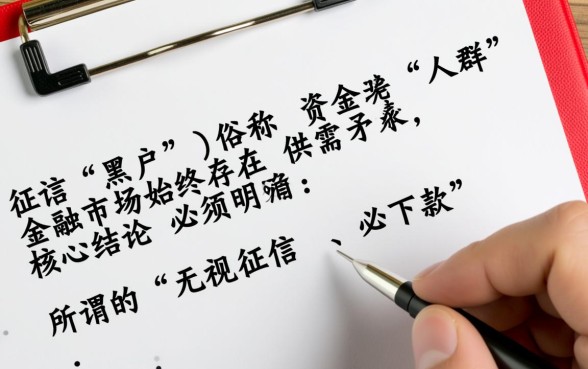 征信“黑户”)俗称 资金 “人群”
金融市场始终存在 供需矛
核心结论 必须明 :
所谓的“无视征信 、必下款”